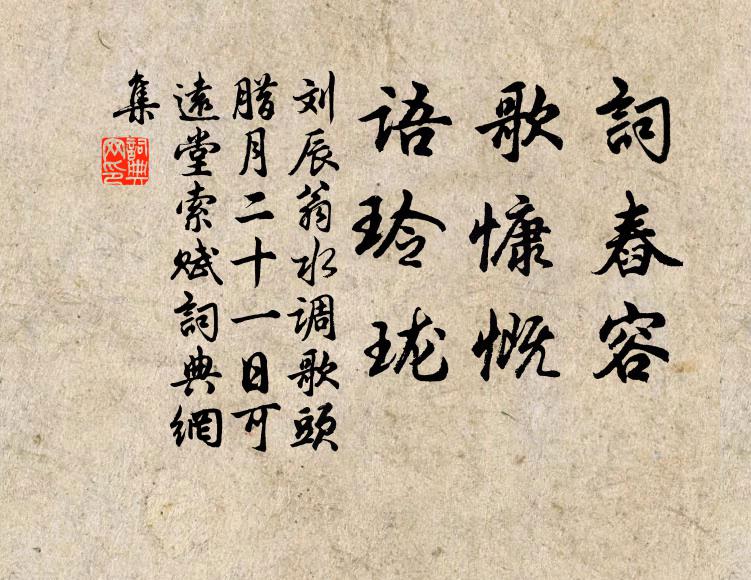 詞舂容
歌慷慨
语玲珑
刘辰翁水调歌頭
腊月二十一日可
遠堂索赋詞典網
集
詞典
网印